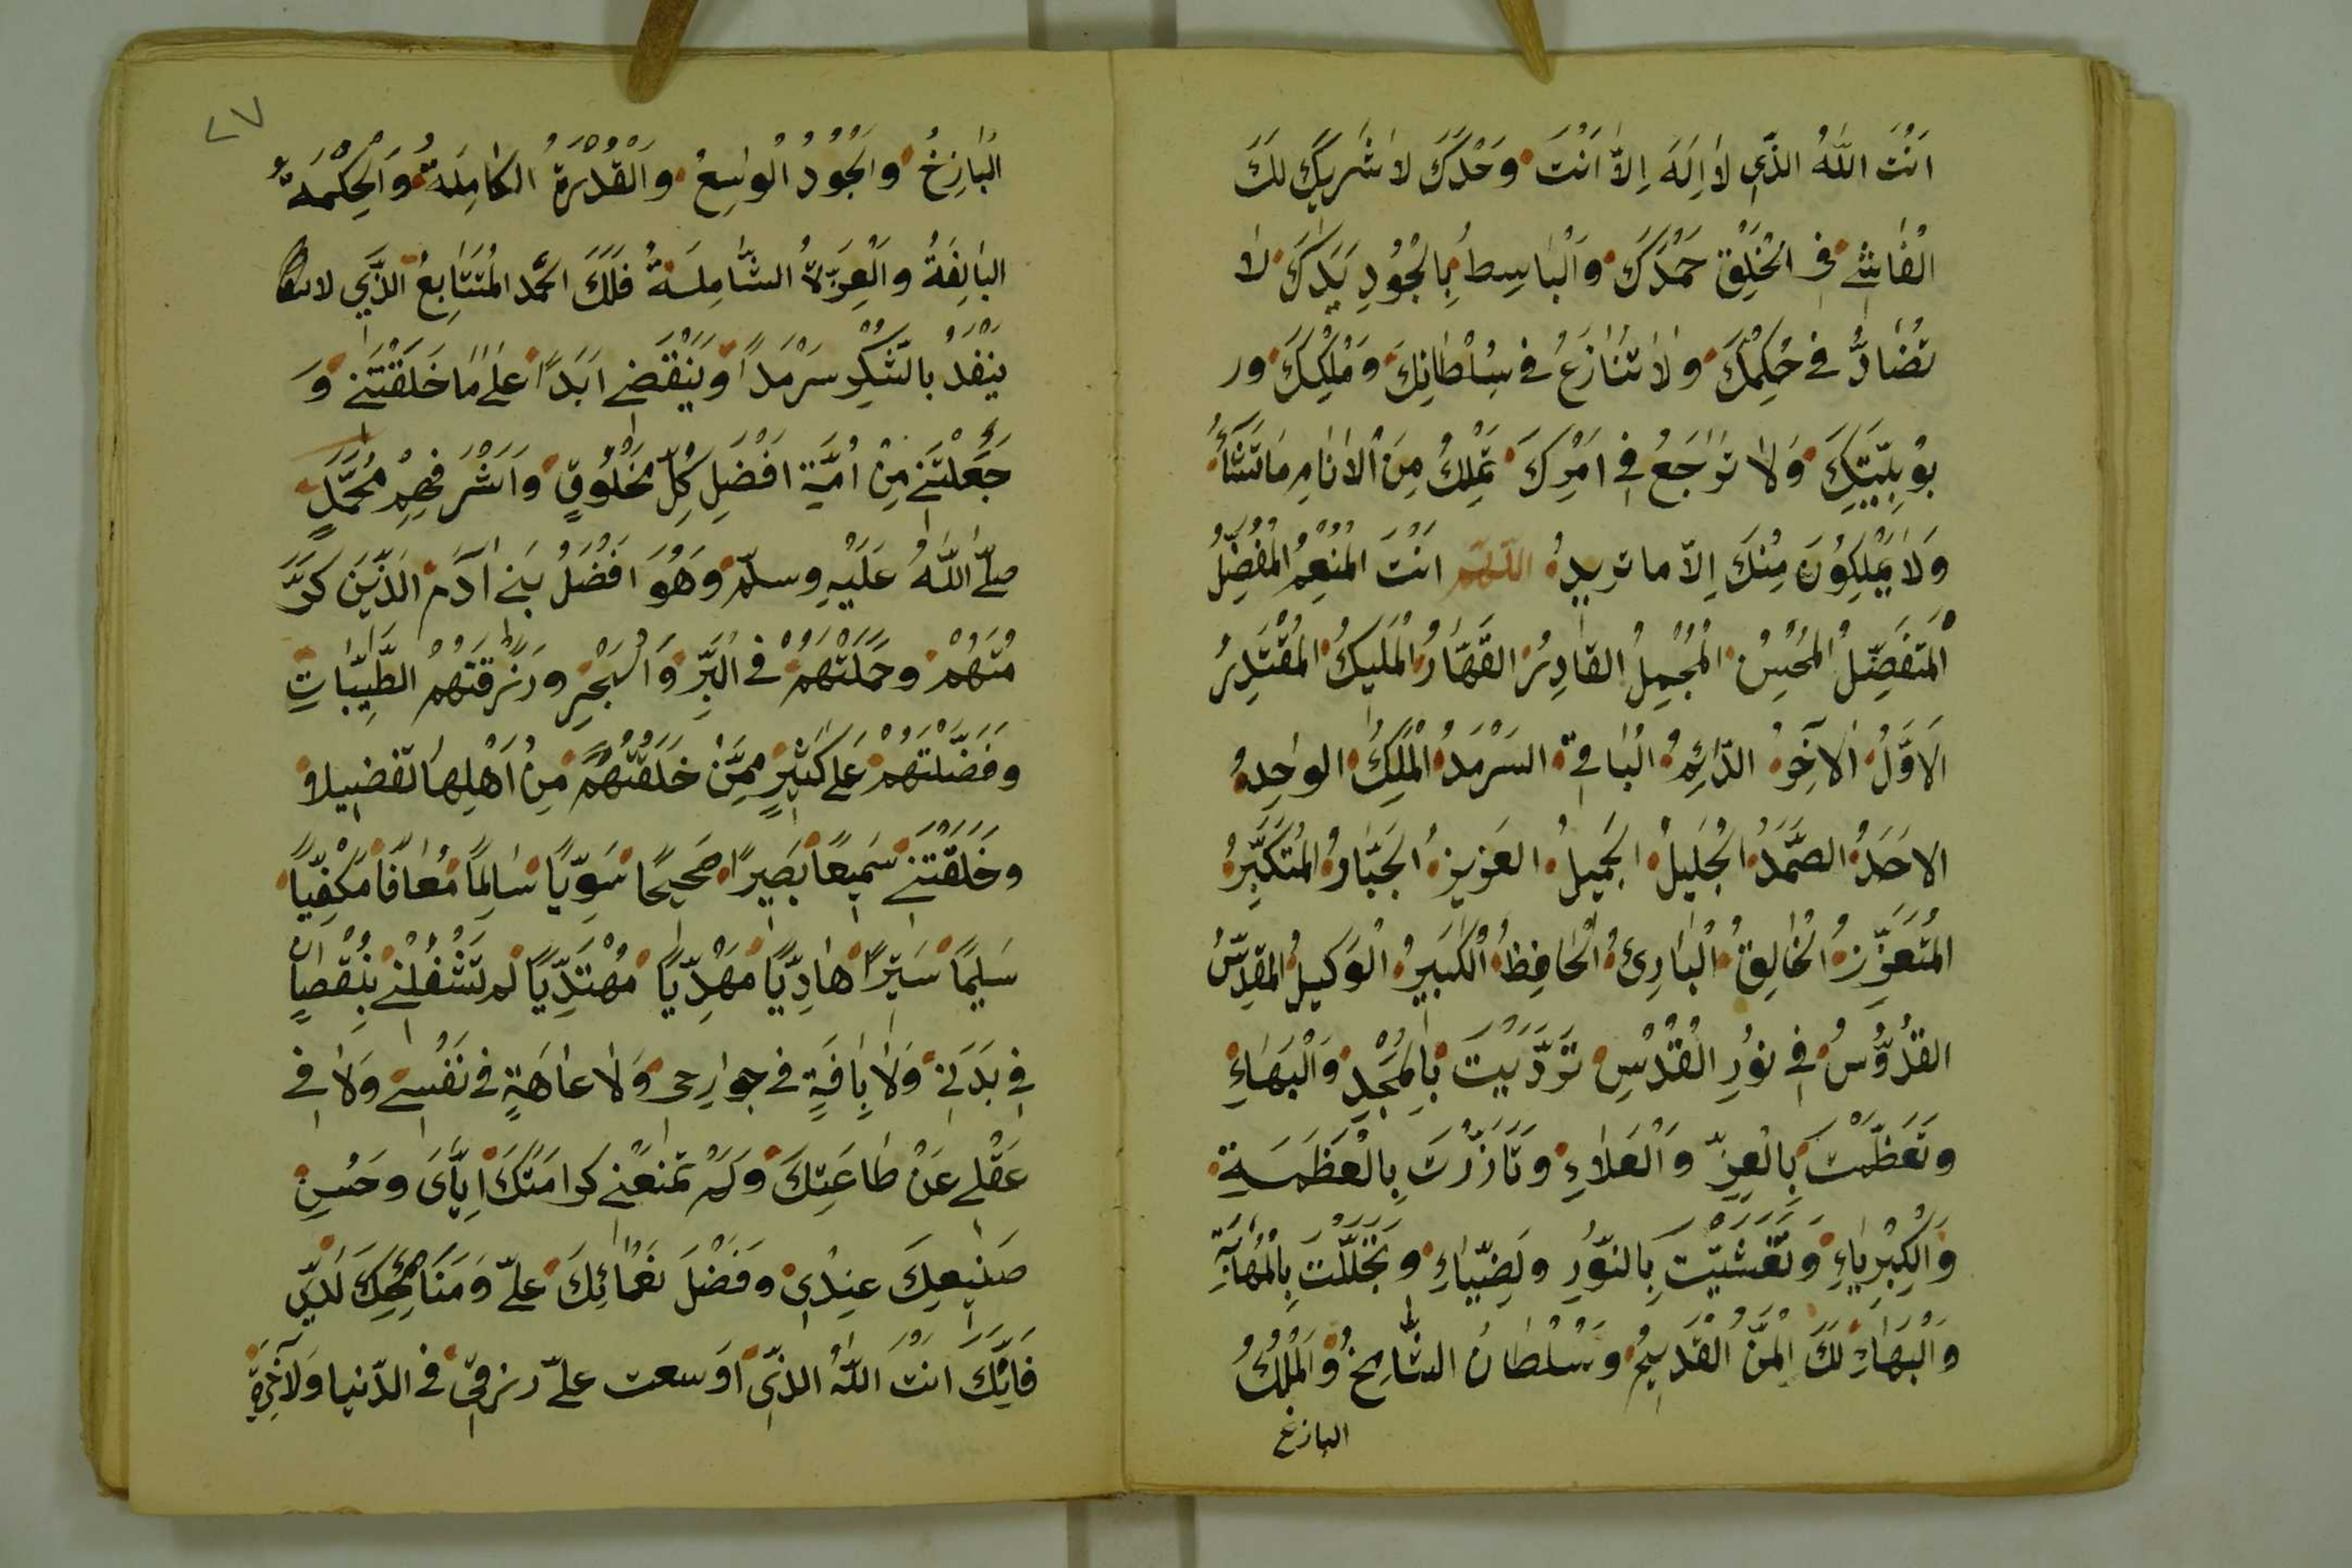 اَنْتَ اللّٰهُ الذّي لاٰ اِلٰهَ اِلاّ اَنْتَ وَحْدَكَ لاٰ شَريكَ لَكَ
الْفاٰشي في الْخَلْقِ حَمْدُكَ وَالْباٰسِطُ بِالْجُودِ يَدَكَ لاٰ
تُضٰادُّ في حُكْمِكَ وَلاٰ تُنٰازَعُ في سُلْطٰانِكَ وَمُلْكِكَ ور
بُوبِيَّتِكَ وَلاٰ تُرٰاجَعُ في اَمْرِكَ تَمْلِكُ مِنَ الْاَنٰامِ مٰاتَشٰٓأُ
وَلاٰ يَمْلِكُونَ مِنْكَ اِلاّ ما تريدُ اللّهمّ انْتَ المُنْعِمُ المُفْضِلُ
الْمُتَفَضِّلُ المُحْسِنُ المُجْمِلُ القادِرُ القَهّارُ المْلَيكُ المُقْتَدِرُ
الاَوَّلُ الآخِرُ الدّائِمُ الْباقِيَ السَرْمَدُ الْمَلِكُ الواحِدُ
الاحَدُ الصَّمَدُ الْجَليلُ الجَميلُ العَزيزُ الجَبّارُ المُتَكَبِّرُ
المُتَعَزِّزُ الْخٰالِقُ الْبٰارِئُ الْحٰافِظُ الْكَبيرُ الْوَكيلُ المقدِّسُ
القُدُّوسُ في نُورِ القُدْسِ تَرَدَّيْتَ بِالمَجْدِ وَالْبَهٰاءِ
وتَعَظَّمْتَ بِالْعِزِّ وَالْعَلاٰءِ وتَأَزَّرْتَ بِالْعَظَمَةِ
وَالْكِبْرِيٰاءِ وَتَغَشَّيْتَ بِالنّوُرِ ولَضِّيٰاءِ وَتَجَلَّلْتَ بِالْمَهٰابَةِ
وَالْبَهٰاءِ لَكَ الْمَنُّ الْقَديمُ وَسُلْطٰانُ الشّٰامِخُ وَالْمُلْكُ
البازغ
الْبٰازِخُ وَالْجُودُ الْوٰسِعُ وَالْقُدْرَةُ الكٰامِلَةُ وَالْحِكْمَةُ
البٰالِغَةُ وَالْعِزَّةُ الشّٰامِلَةُ فَلَكَ الْحَمْدُ الْمُتَتٰابِعُ الذَّي لا
يَنْفَدُ بالشُكْرِ سَرْمَداً وَيَنْقَضي اَبَداً عَلٰى مٰا خَلَقْتَني وَ
جَعَلْتَني مِنْ اُمَّةِ افْضَلِ كُلِّ مَخْلُوقٍ وَاَشْرَفِهِمْ مُحَمَّدٍ
صلّى اللّٰهُ عَلَيْهِ وسلّم وَهُوَ اَفْضَلُ بَني اٰدَمَ الَذّيَن كَرَّ
مْتَهُمْ وَحَمَلْتَهُمْ في الْبَرِّ وَالْبَحْرِ وَرَزَقْتَهُمْ الطَّيِّبٰاتِ
وفَضَّلْتَهُمْ عَلى كَثيرٍ مِمَّنْ خَلَقْتَهُمْ مِنْ اَهْلِهٰا تَفْضيلا
وخَلَقْتَني سَميعاً بَصيراً صَحيحًا سَوِيّاً سٰالِماً مُعٰافاً مَكْفِيّاً
سَليماً سَتيراً هٰادِيّاً مَهْدِيّاً مُهْتَدِيّاً لم تَشْغُلْني بِنُقْصاٰنٍ
في بَدَني وَلاٰ بِاٰفَةٍ في جوارِحى وَلا عٰاهَةٍ في نَفْسي وَلاٰ في
عَقْلي عَنْ طٰاعَتِكَ وَلَمْ تَمْنَعْني كرامَتَكَ اِيّٰاىَ وحُسْنِ
صَنيعِكَ عِنْدى وفَضْلَ نَعْمٰائِكَ علىّ وَمَنَائِحِكَ لَدَيّ
فَاِنّكَ انْتَ اللّٰهُ الذّي اَوْسعت علىّ رزقي في الدّنيا وَلآخِرَةِ